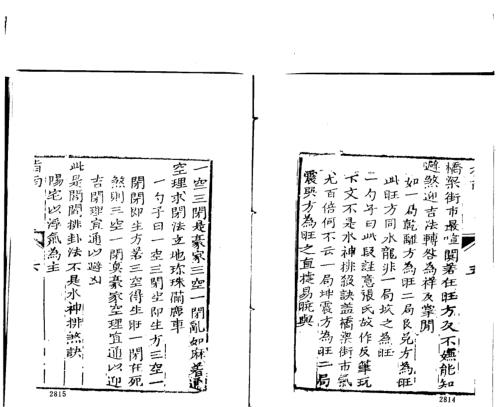 橋梁街市最喧闐若在旺方久不嫌能知
避煞迎吉法轉咎為祥反掌間
如一局乾離方為旺二局艮兌方為旺
此旺方同水龍非一局坎之為旺
二勺子曰此段註意張氏故作反筆玩
下文不是水神排殺訣蓋橋梁街市氣
尤百倍何不云一局坤震方為旺二局
震巽方為旺之直捷易曉與
五
2814
一空三閉是豪家三空一閉亂如麻若遇
空理求閉法立地珍珠滿
一勺子曰一空三閉坐即生方三空一
閉閉即生方若三空得生旺一閉在死
煞則三空一閉真豪家空理宜通以迎
吉閉理宜通以避凶
此是開閉排卦法不是水神排煞訣
陽宅以浮氣為主
指南
六
2815